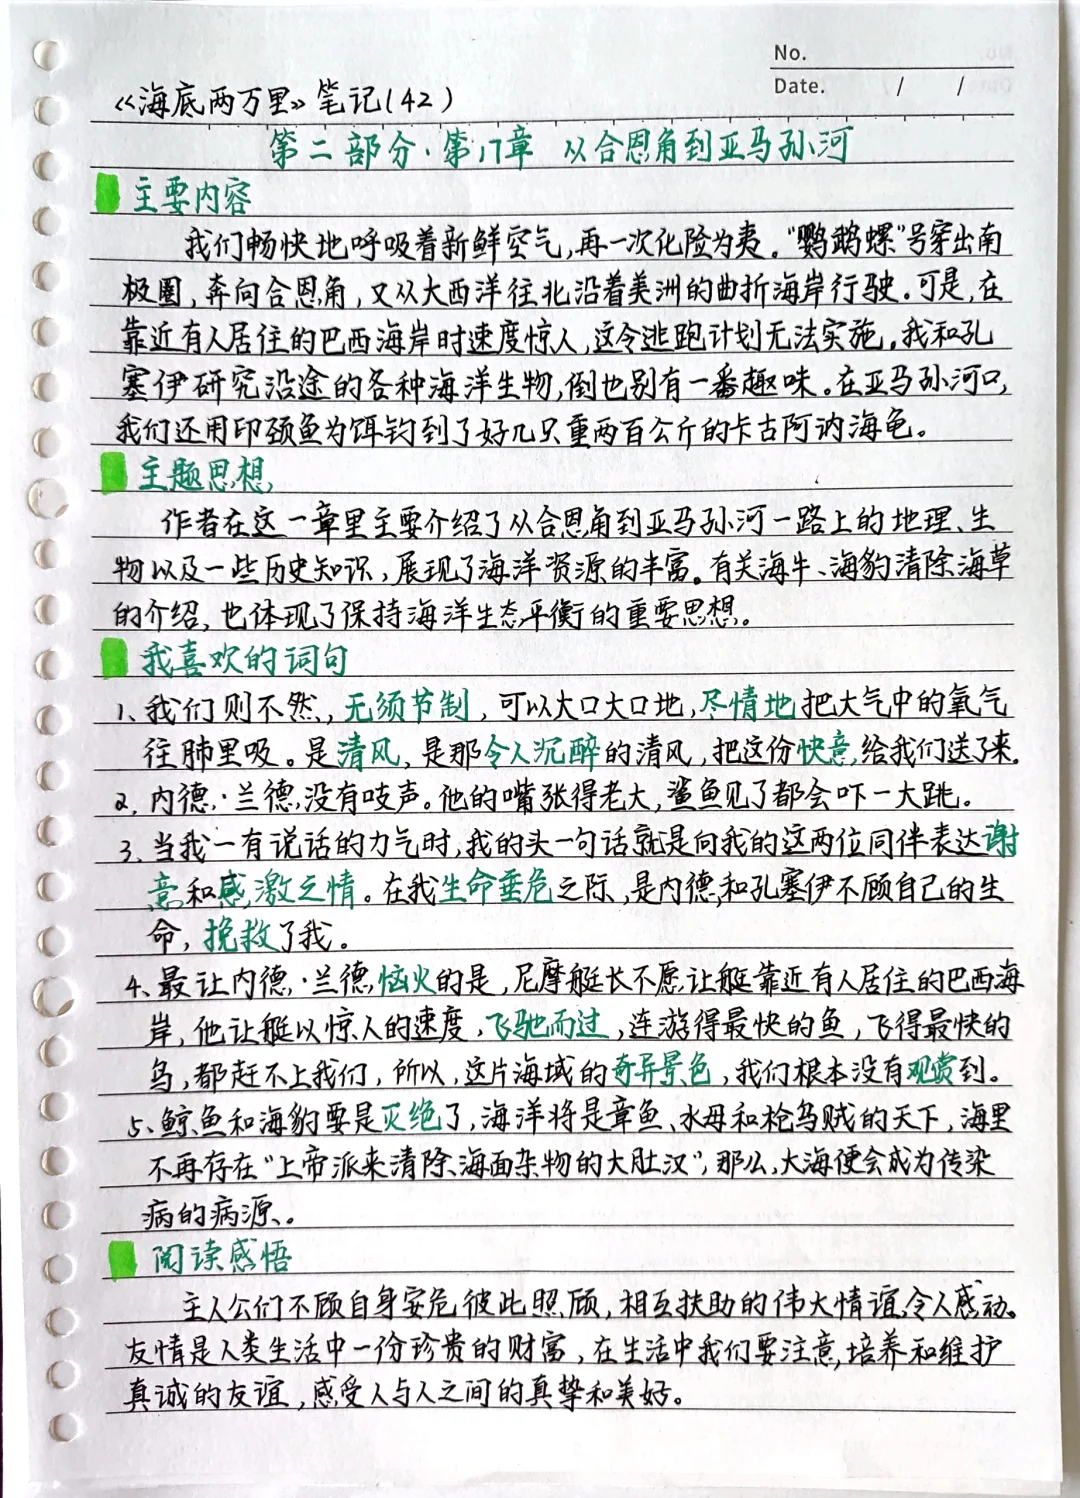 No.
Date. / /
《海底两万里》笔记(42)
第二部分·第17章 从合恩角到亚马孙河
主要内容
我们畅快地呼吸着新鲜空气,再一次化险为夷。“鹦鹉螺”号穿出南
极圈,奔向合恩角,又从大西洋往北沿着美洲的曲折海岸行驶。可是,在
靠近有人居住的巴西海岸时速度惊人,这令逃跑计划无法实施。我和孔
塞伊研究沿途的各种海洋生物,倒也别有一番趣味。在亚马孙河口,
我们还用印颈鱼为饵钓到了好几只重两百公斤的卡古阿讷海龟。
主题思想
作者在这一章里主要介绍了从合恩角到亚马孙河一路上的地理、生
物以及一些历史知识,展现了海洋资源的丰富。有关海牛、海豹清除海草
的介绍,也体现了保持海洋生态平衡的重要思想。
我喜欢的词句
1、我们则不然,无须节制,可以大口大口地,尽情地把大气中的氧气
往肺里吸。是清风,是那令人沉醉的清风,把这份快意给我们送了来。
2、内德·兰德没有吱声。他的嘴张得老大,鲨鱼见了都会吓一大跳。
3、当我一有说话的力气时,我的头一句话就是向我的这两位同伴表达谢
意和感激之情。在我生命垂危之际,是内德和孔塞伊不顾自己的生
命,挽救了我。
4、最让内德·兰德恼火的是,尼摩艇长不愿让艇靠近有人居住的巴西海
岸,他让艇以惊人的速度,飞驰而过,连游得最快的鱼,飞得最快的
鸟,都赶不上我们,所以,这片海域的奇异景色,我们根本没有观赏到。
5、鲸鱼和海豹要是灭绝了,海洋将是章鱼、水母和枪乌贼的天下,海里
不再存在“上帝派来清除海面杂物的大肚汉”,那么,大海便会成为传染
病的病源、。
阅读感悟
主人公们不顾自身安危彼此照顾,相互扶助的伟大情谊令人感动。
友情是人类生活中一份珍贵的财富,在生活中我们要注意培养和维护
真诚的友谊,感受人与人之间的真挚和美好。